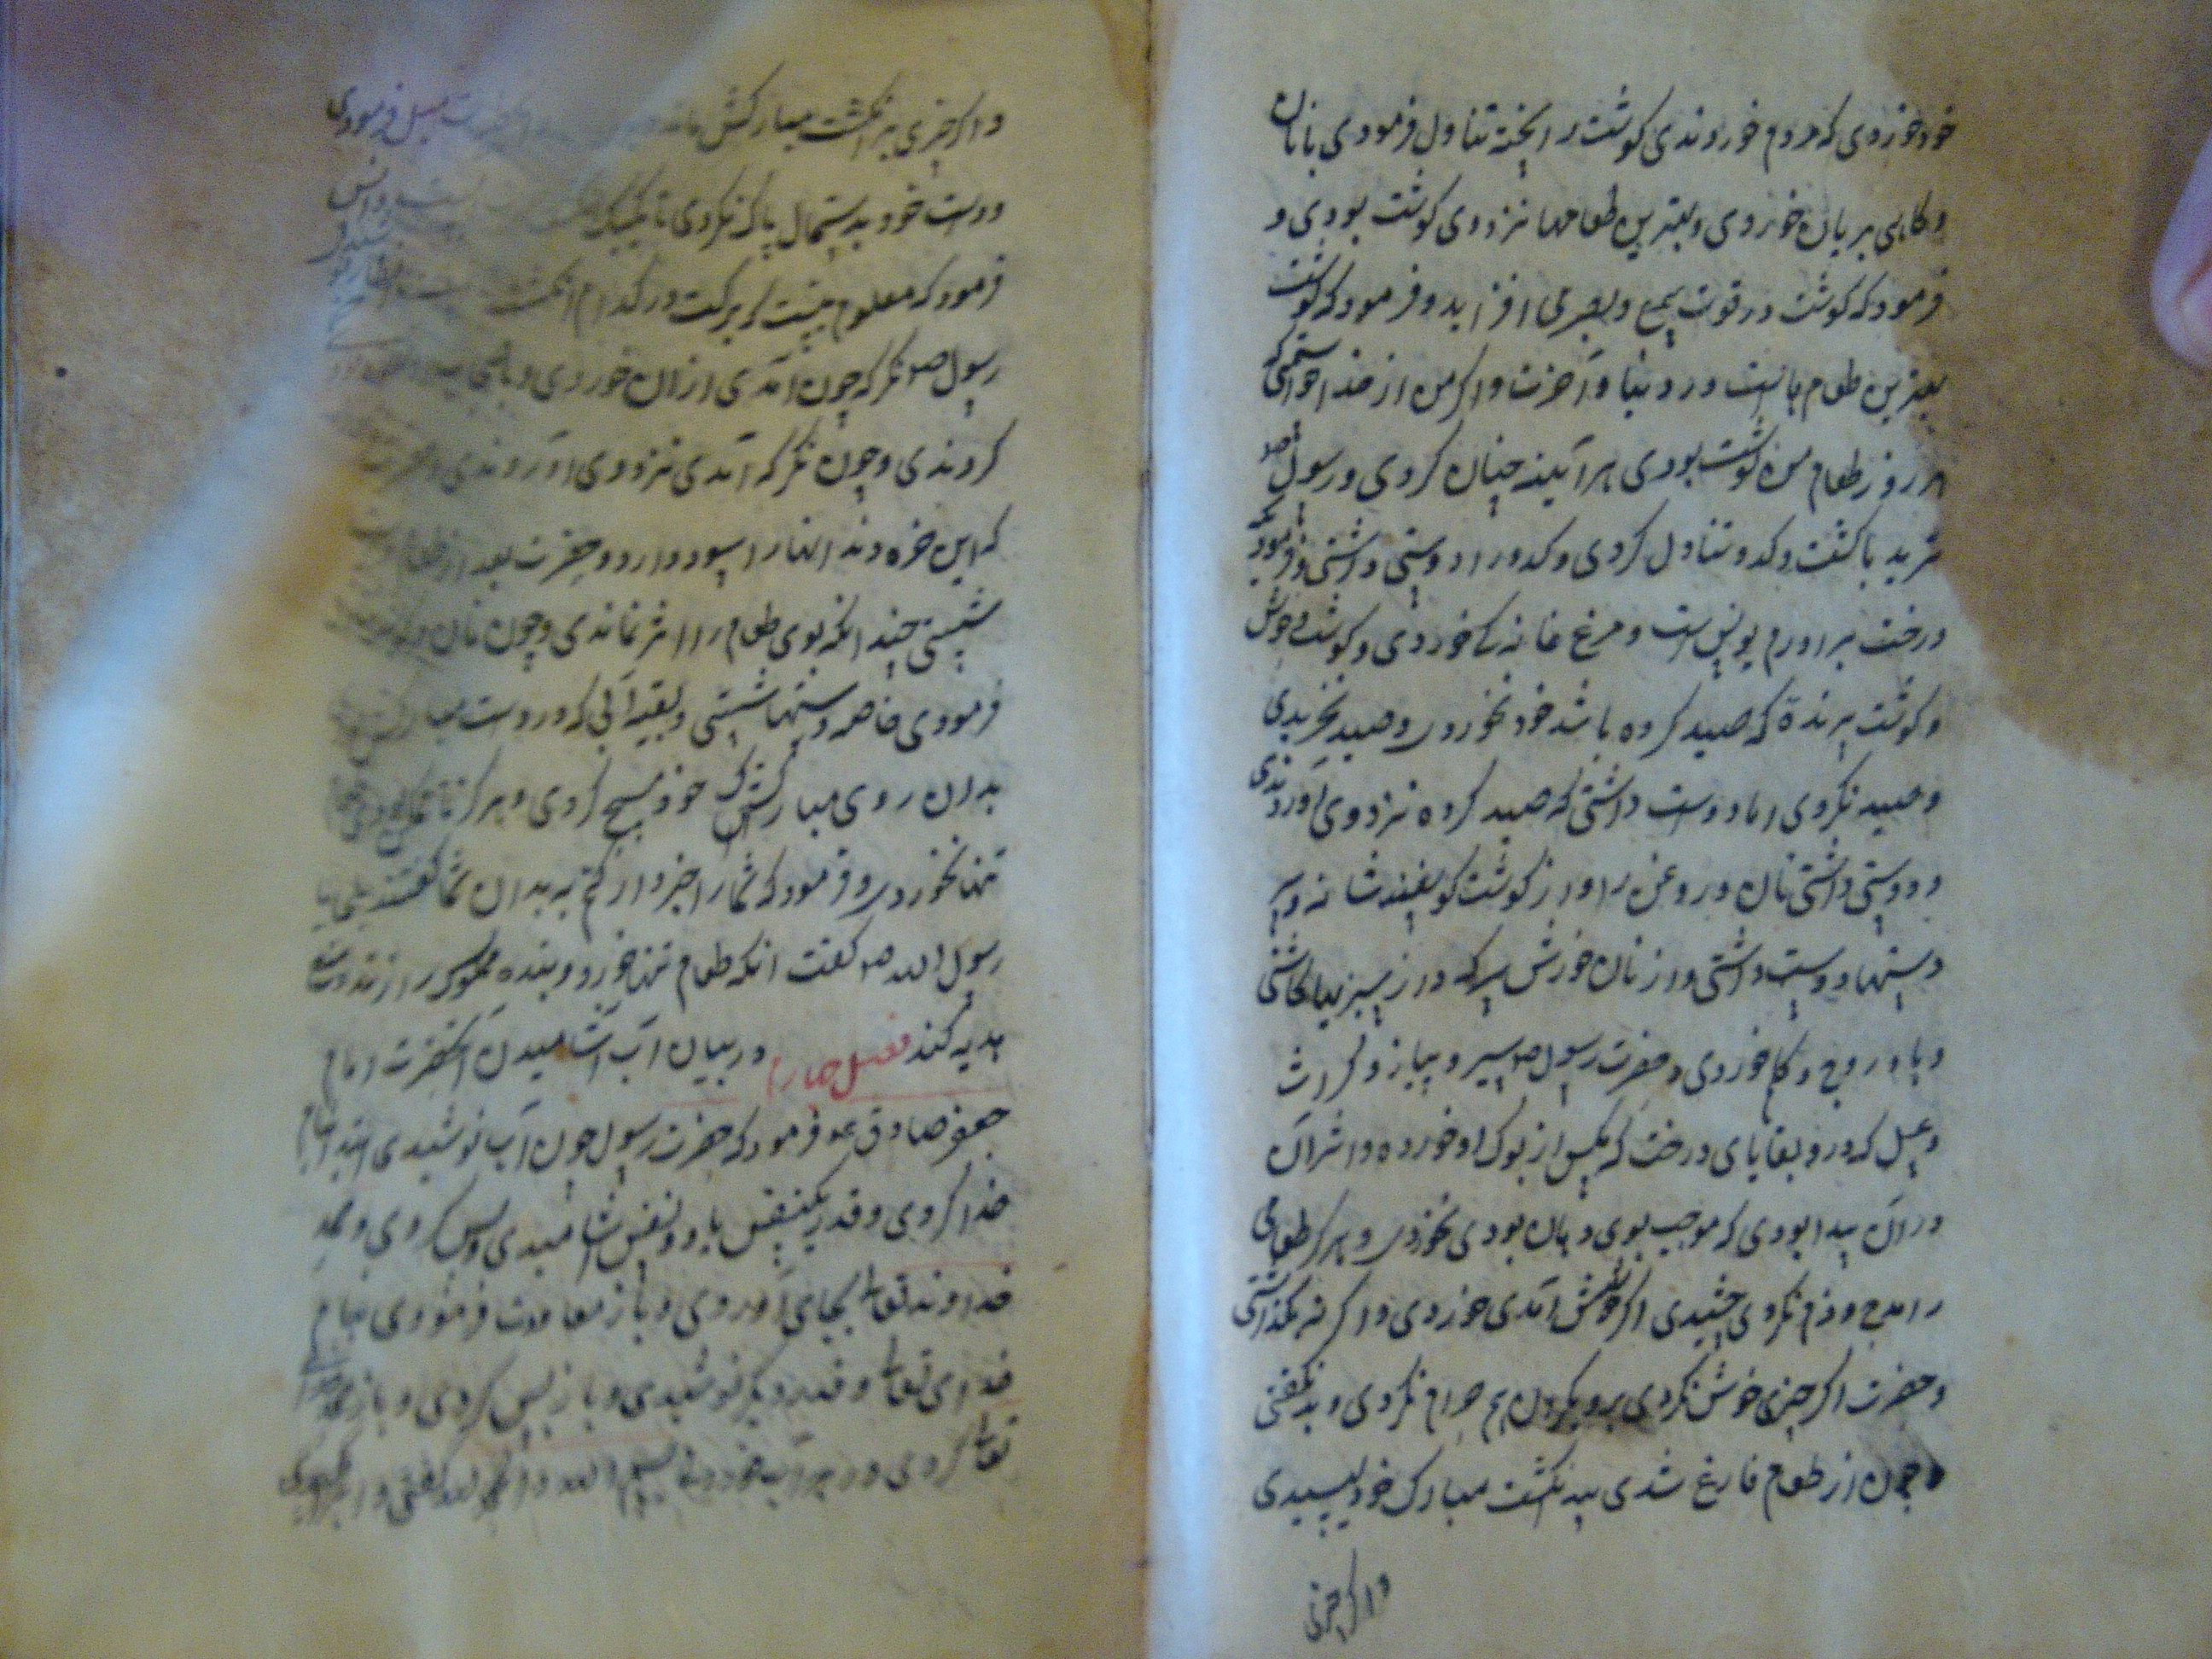 خود خوردی که مردم خوردندی گوشت را پخته تناول فرمودی با نان
و گاهی بریان خوردی و بهترین طعامها نزد وی گوشت بودی و
فرمود که گوشت در قوت سمع و بصر می افزاید و فرمود که گوشت
بهترین طعام هاست در دنیا و آخرت و اگر من از خدا خواستمی که
هر روز طعام من گوشت بودی هر آینه چنان کردی و رسول ص
ثرید با گشت و کدو تناول کردی و کدو را دوستی داشتی و فرمود که
درخت برادرم یونس است و مرغ خانه کی خوردی و گوشت وحوش
و گوشت پرنده که صید کرده باشد خود نخوردی و صید نخریدی
و صید نکردی اما دوست داشتی که صید کرده نزد وی آوردندی
و دوستی داشتی نان و روغن را و از گوشت گوسفند شانه و سر
دستها دوست داشتی و از نان خورش سرکه و از سبزیها کاشنی
و بادروج و کلم خوردی و حضرت رسول ص سیر و پیاز و کراث
و عسل که در و بقایای درخت که مکس از بوک او خورده و اثر آن
در آن پیدا بودی که موجب بوی دهان بودی نخوردی و هرگز طعامی
را مدح و ذم نکردی چشیدی اگر خوش آمدی خوردی و اگر نه بگذاشتی
و حضرت اگر چیزی خوش نکردی بر دیگران هم حرام نکردی و بد نگفتی
و چون از طعام فارغ شدی سه انگشت مبارک خود لیسیدی
و اگر چیزی
و اگر چیزی بر انگشت مبارکش فرمودی
و دست خود بدستمال پاک نکردی تا
فرمود که معلوم نیست که برکت در کدام انگشت
رسول ص مگر که چون آمدی از آن خوردی و
کردندی و چون تگرگ آمدی نزد وی آوردندی
که این خوردندانها را سود دارد و حضرت بعد از طعام
شستی چندانکه بوی طعام را اثر نماندی و چون نان و
فرمودی خاصه دستها شستی و بقیه آبی که در دست مبارکش
بدان روی مبارکش خود مسح کردی و هرگز تا
تنها نخوردی و فرمود که شما را خبر دار کنم به بدان شما گفتند بلی یا
رسول الله ص گفت آنکه طعام تنها خورد و بنده مملوک را زند و منع
هدیه کند فصل چهارم در بیان آب آشامیدن آنحضرت امام
جعفر صادق ع فرمود که حضرت رسول چون آب نوشیدی ابتدا بنام
خدا کردی و قدر یکنفس یا دو نفس آشامیدی و بس کردی و حمد
خداوند تعالی بجای آوردی و باز معاودت فرمودی بنام
خدای تعالی و قدر دیگر نوشیدی و باز بس کردی و باز حمد
تعالی کردی و در هر آب خوردن بسم الله و الحمد لله گفتی و